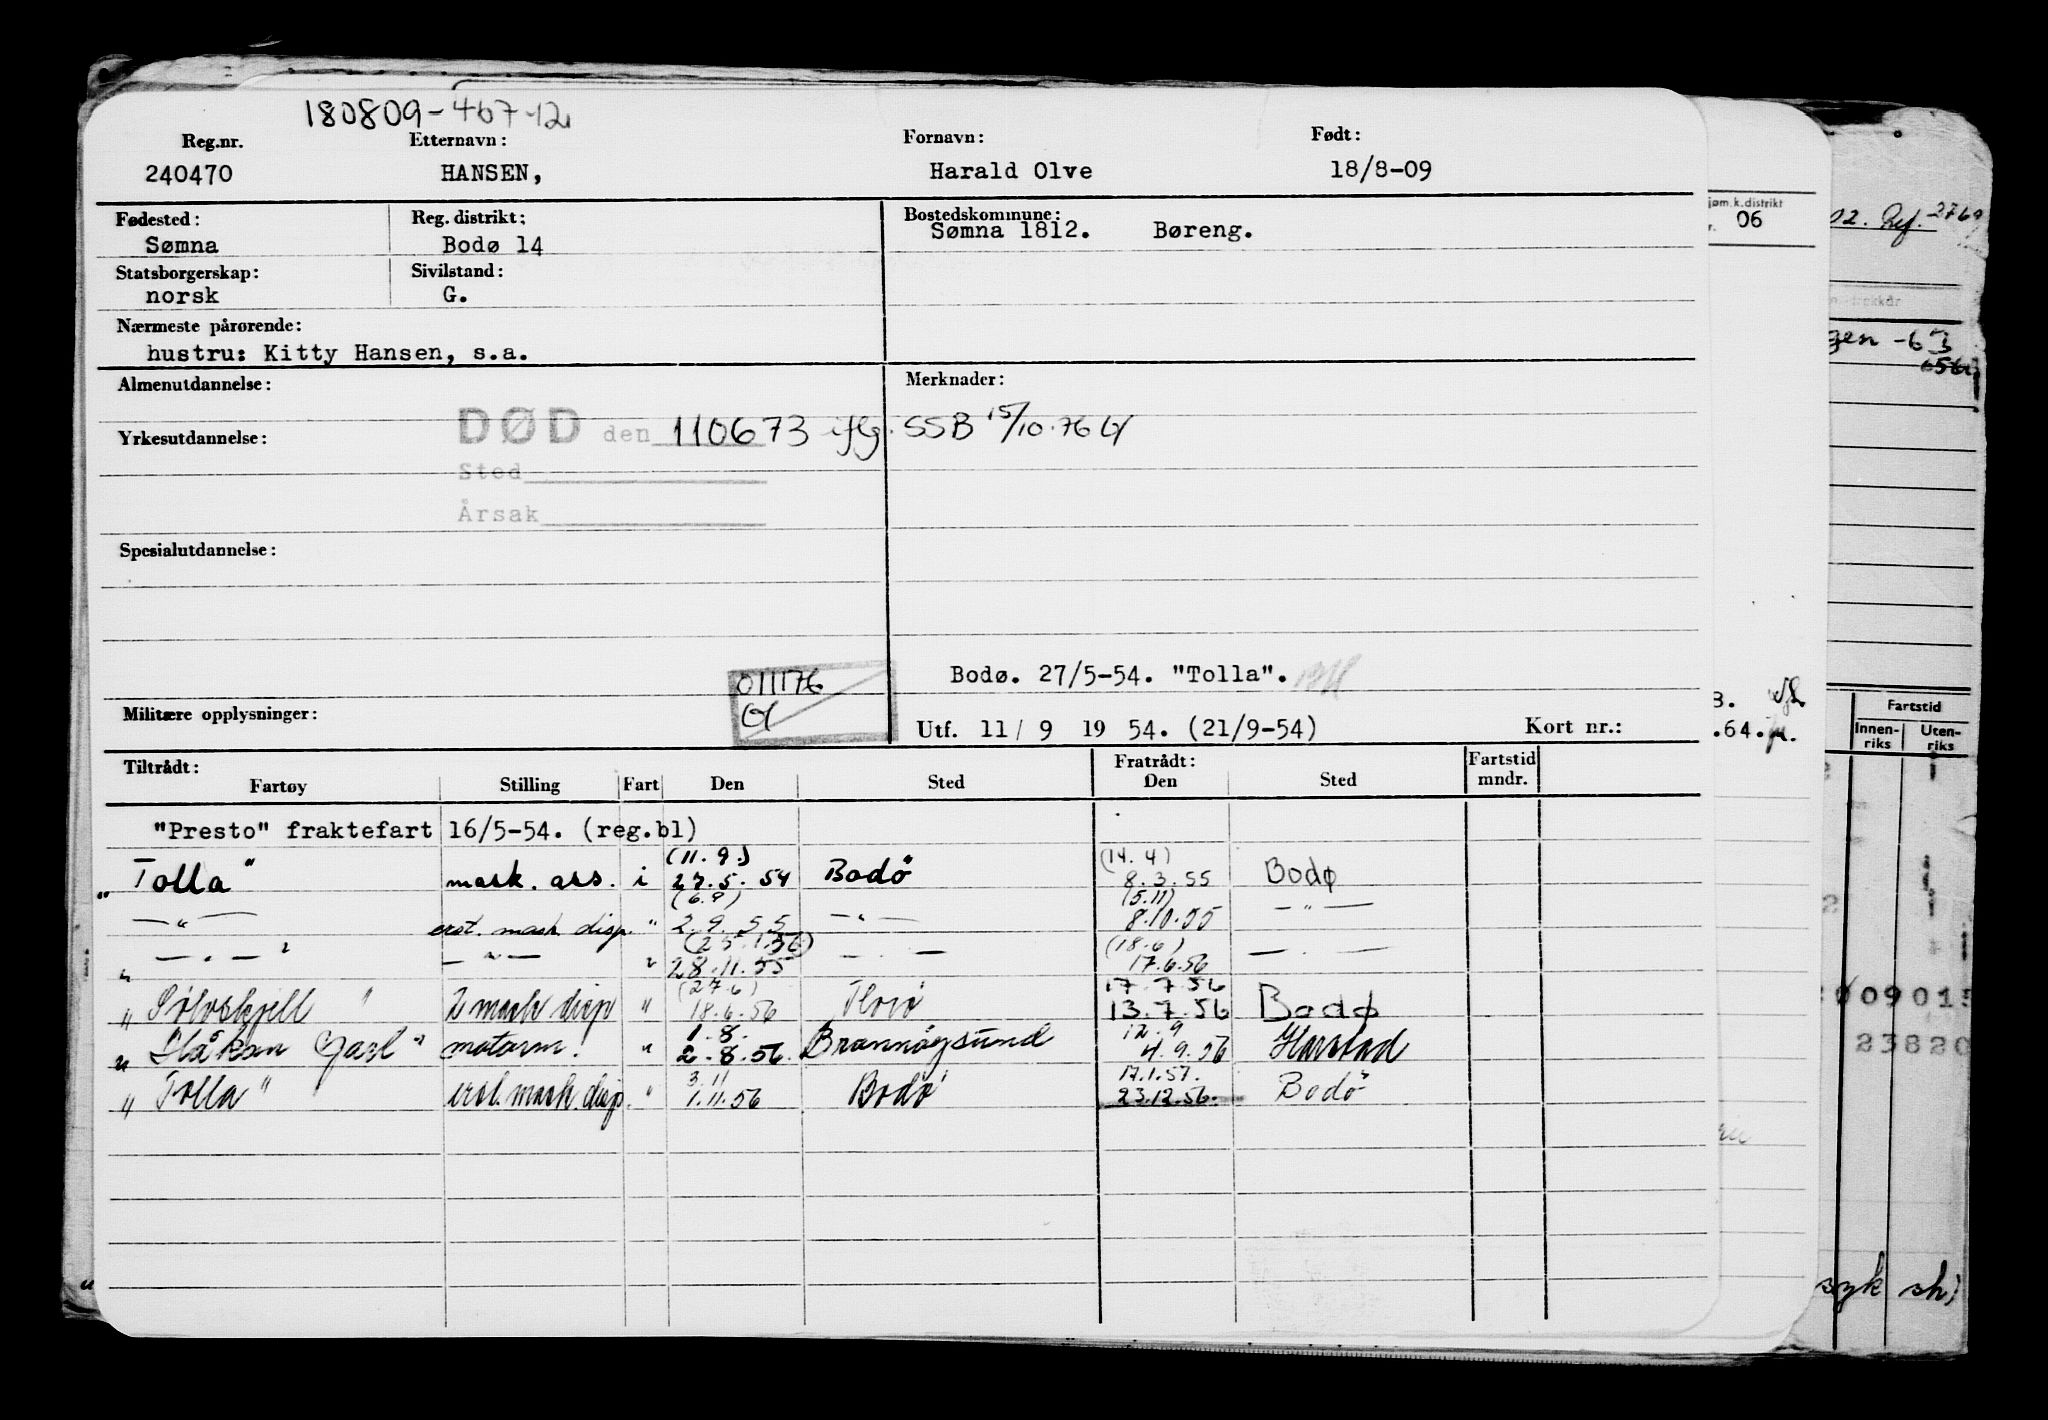 180809-467-12
Reg.nr. Etternavn: Fornavn: Født:
240470 HANSEN, Harald Olve 18/8-09
Fødested: Reg. distrikt: Bostedskommune:
Sømna Bodø 14 Sømna 1812. Børeng.
Statsborgerskap: Sivilstand:
norsk G.
Nærmeste pårørende:
hustru: Kitty Hansen, s.a.
Almenutdannelse: Merknader:
DØD den 110673 iflg. SSB 15/10.76
Yrkesutdannelse:
Sted
Årsak
Spesialutdannelse:
Bodø. 27/5-54. "Tolla".
011176
Militære opplysninger:
Utf. 11/ 9 19 54. (21/9-54) Kort nr.:
Tiltrådt: Fratrådt: Fartstid
Fartøy Stilling Fart Den Sted Den Sted mndr.
"Presto" fraktefart 16/5-54. (reg.bl)
(11.9.) (14.4)
"Tolla" mask. ass. i 27.5.54 Bodø 8.3.55 Bodø
(6.9) (5.11)
— " — erst. mask. disp. " 2.9.55 — " — 8.10.55 — " —
(25.1.56) (18.6)
" — " — " — " — " 28.11.55 — " — 17.6.56 — " —
(27.6) 17.7.56
"Sølvskjell" 2 mask disp " 18.6.56 13.7.56 Bodø
1.8. 12.9
"Håkon Jarl" motorm. " 2.8.56. Brønnøysund 4.9.56 Harstad
3.11 17.1.57.
"Tolla" erst. mask. disp. " 1.11.56 Bodø 23.12.56. Bodø
jøm.k.distrikt
06
.64.
02. Ref. 2769
gen -63
Fartstid
Innen-riks Uten-riks
09015
23820
syk sh)